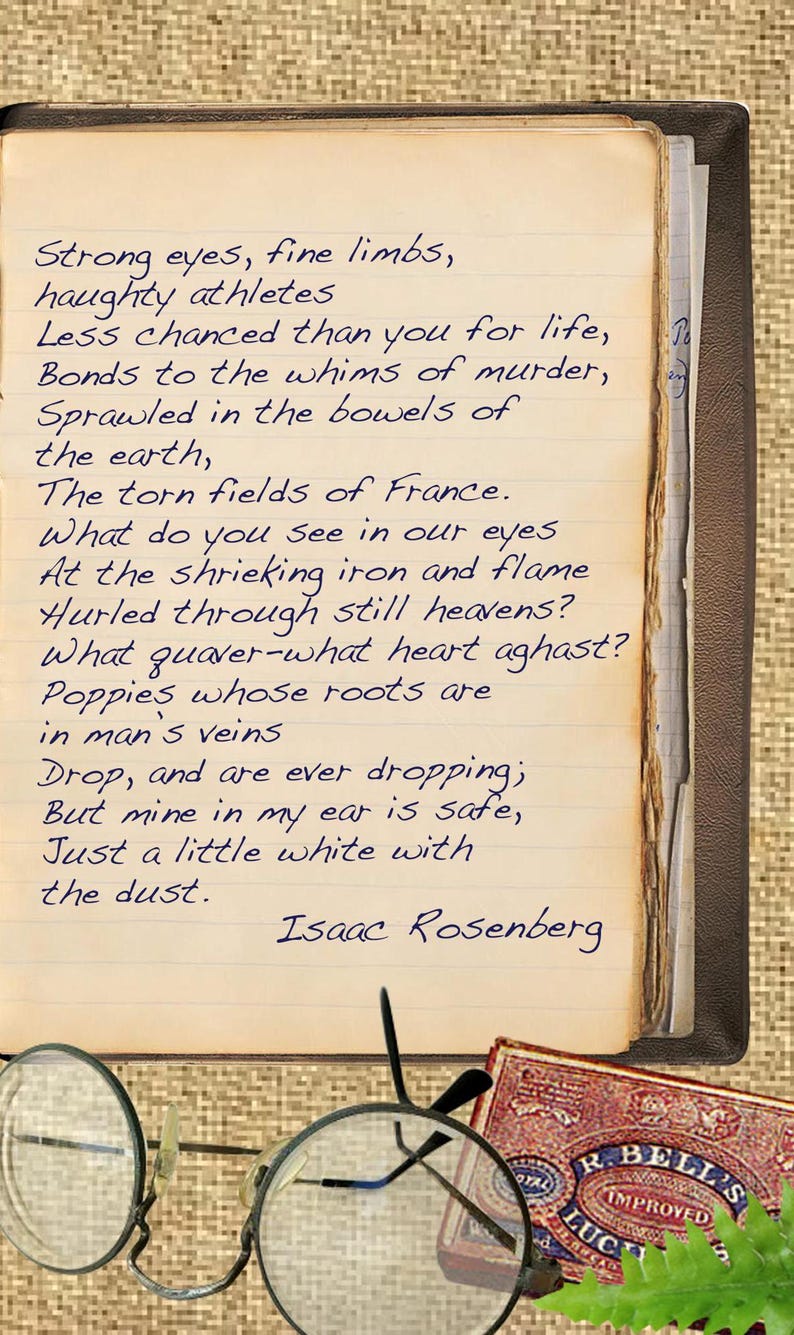 Strong eyes, fine limbs,
haughty athletes
Less chanced than you for life,
Bonds to the whims of murder,
Sprawled in the bowels of
the earth,
The torn fields of France.
What do you see in our eyes
At the shrieking iron and flame
Hurled through still heavens?
What quaver-what heart aghast?
Poppies whose roots are
in man's veins
Drop, and are ever dropping;
But mine in my ear is safe,
Just a little white with
the dust.
Isaac Rosenberg
R. BELL'S
ROYAL
IMPROVED